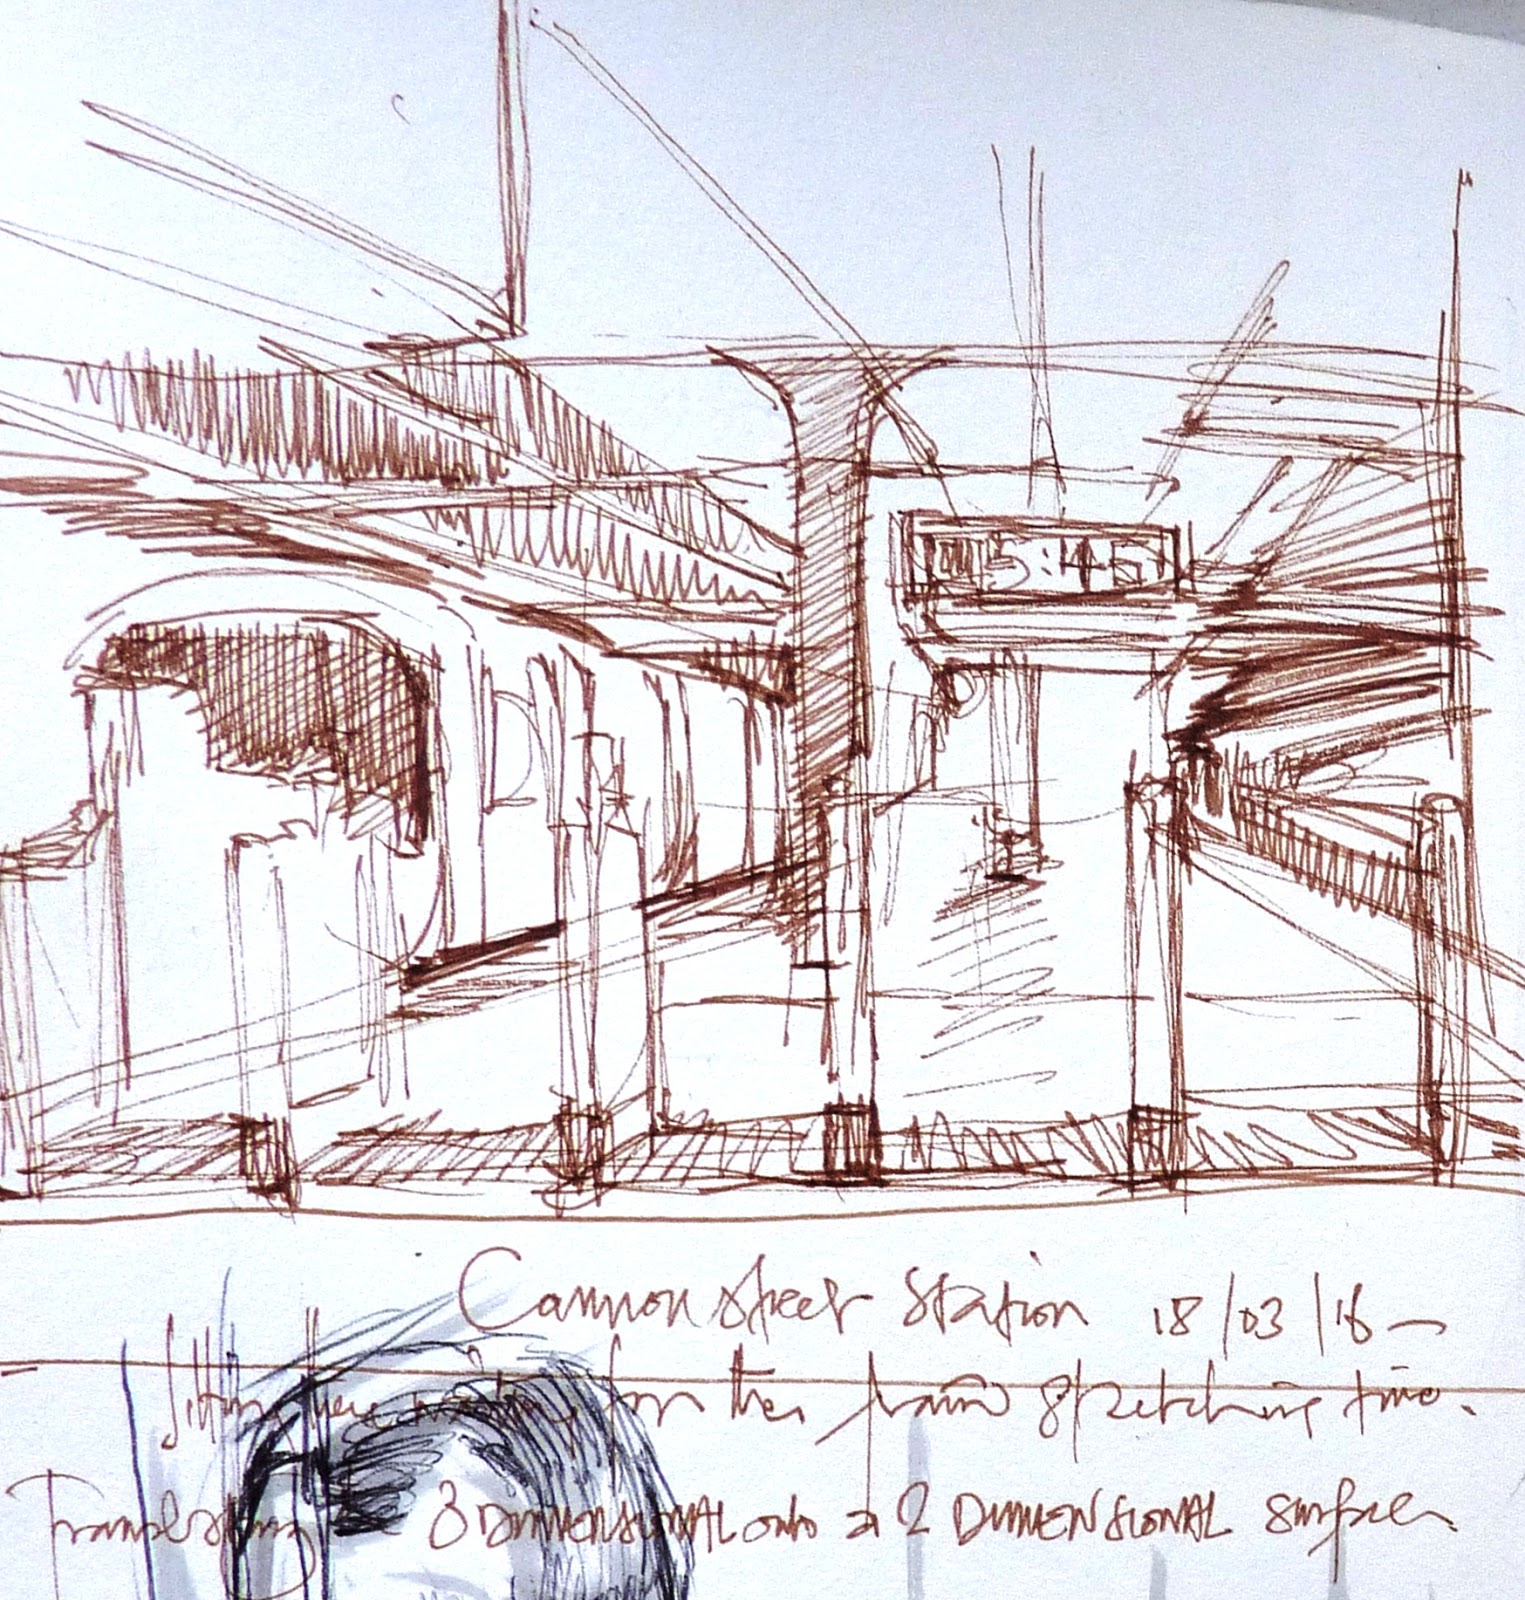 15:46
Cannon Street Station 18/03/16 —
Sitting here waiting for the train stretching time.
Translating 3 DIMENSIONAL onto a 2 DIMENSIONAL surface.